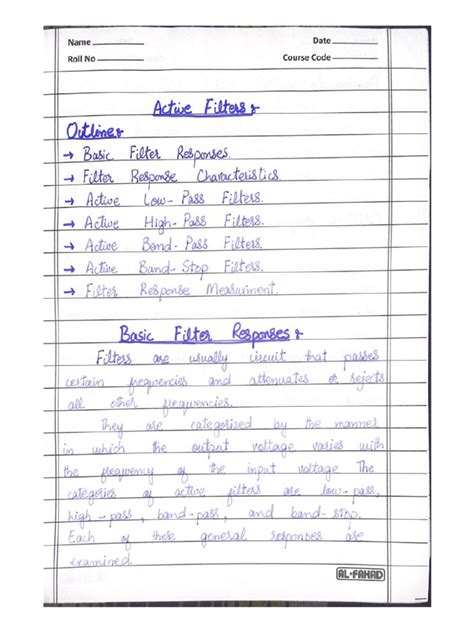 Name
Date
Roll No
Course Code
Active Filters :
Outline :
→ Basic Filter Responses.
→ Filter Response Characteristics.
→ Active Low-Pass Filters.
→ Active High-Pass Filters.
→ Active Band-Pass Filters.
→ Active Band-Stop Filters.
→ Filter Response Measurment.
Basic Filter Responses :
Filters are usually circuit that passes
certain frequencies and attenuates or rejects
all other frequencies.
They are categorized by the manner
in which the output voltage varies with
the frequency of the input voltage The
categories of active filters are low-pass,
high-pass, band-pass, and band-stop.
Each of these general responses are
examined.
AL-FAHAD